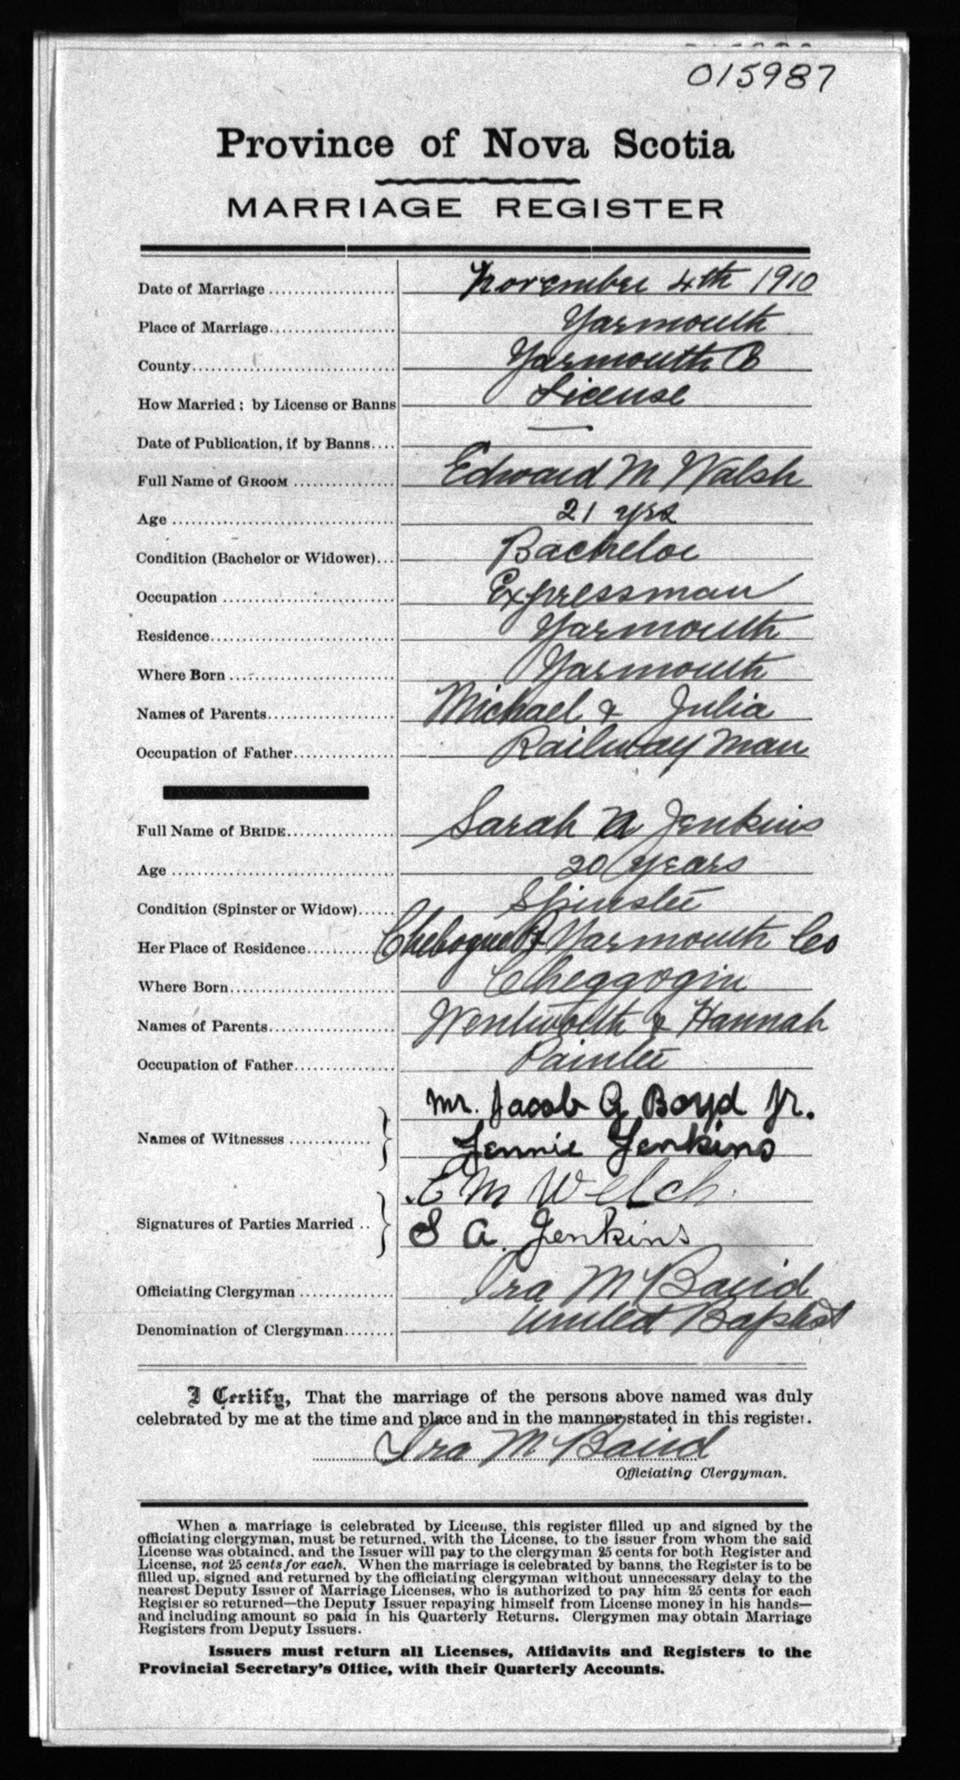 015987
Province of Nova Scotia
MARRIAGE REGISTER
Date of Marriage November 4th 1910
Place of Marriage Yarmouth
County Yarmouth Co
How Married: by License or Banns License
Date of Publication, if by Banns —
Full Name of GROOM Edward M Walsh
Age 21 yrs
Condition (Bachelor or Widower) Bachelor
Occupation Expressman
Residence Yarmouth
Where Born Yarmouth
Names of Parents Michael & Julia
Occupation of Father Railway man
Full Name of BRIDE Sarah A Jenkins
Age 20 years
Condition (Spinster or Widow) Spinster
Her Place of Residence Chebogue Pt Yarmouth Co
Where Born Cheggogin
Names of Parents Wentworth & Hannah
Occupation of Father Painter
Names of Witnesses Mr. Jacob G Boyd Jr.
Jennie Jenkins
Signatures of Parties Married E M Welch.
S A. Jenkins
Officiating Clergyman Ira M Baird
Denomination of Clergyman United Baptist
I Certify, That the marriage of the persons above named was duly
celebrated by me at the time and place and in the manner stated in this register.
Ira M Baird
Officiating Clergyman.
When a marriage is celebrated by License, this register filled up and signed by the
officiating clergyman, must be returned, with the License, to the issuer from whom the said
License was obtained, and the Issuer will pay to the clergyman 25 cents for both Register and
License, not 25 cents for each. When the marriage is celebrated by banns, the Register is to be
filled up, signed and returned by the officiating clergyman without unnecessary delay to the
nearest Deputy Issuer of Marriage Licenses, who is authorized to pay him 25 cents for each
Register so returned—the Deputy Issuer repaying himself from License money in his hands—
and including amount so paid in his Quarterly Returns. Clergymen may obtain Marriage
Registers from Deputy Issuers.
Issuers must return all Licenses, Affidavits and Registers to the
Provincial Secretary's Office, with their Quarterly Accounts.